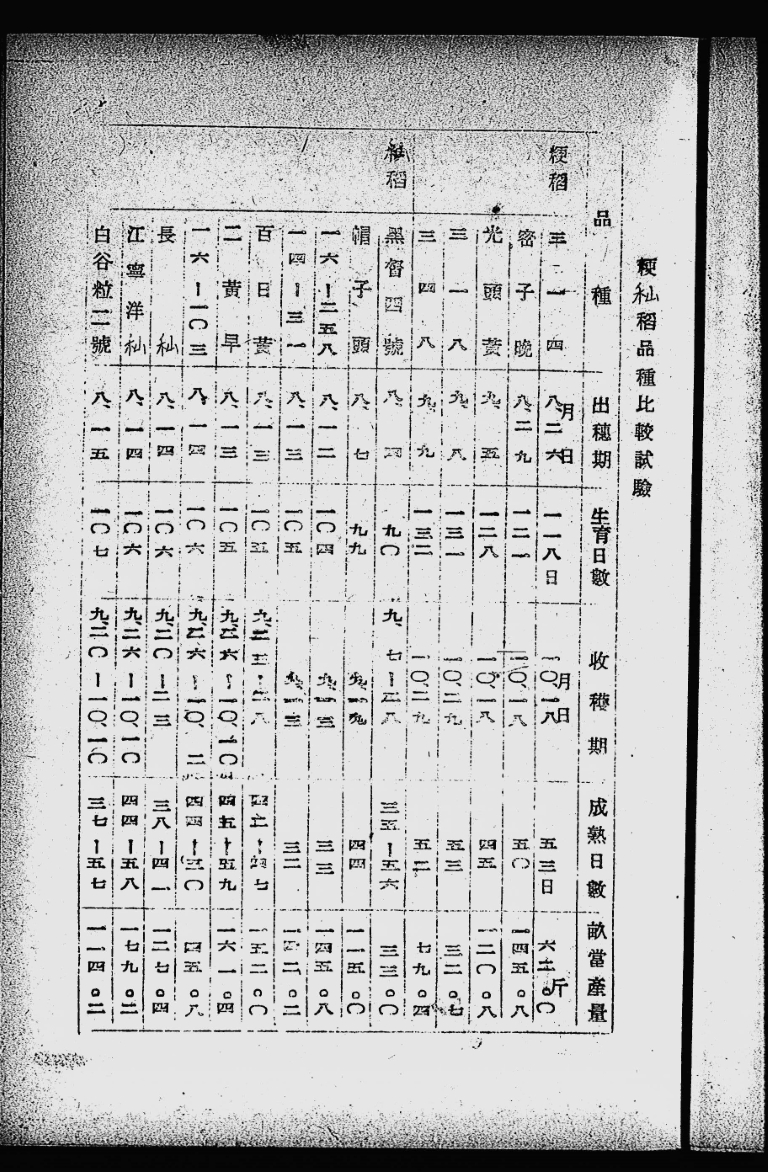 粳籼稻品種比較試驗
品種 出穗期 生育日數 收穫期 成熟日數 畝當產量
粳稻 三一四 八、二六 月日 一一八日 一〇、一八 月日 五三日 六二。〇斤
密子晚 八、二九 一二一 一〇、一八 五〇 一四五。八
光頭黃 九、五 一二八 一〇、一八 四五 一二〇。八
三一八 九、八 一三一 一〇、二九 五三 三二。七
三四八 九、九 一三二 一〇、二九 五二 七九。四
籼稻 黑督四號 八、四 九〇 九、七—二八 三五—五六 三三。〇
帽子頭 八、七 九九 九、一九 四四 一一五。〇
一六—二五八 八、一二 一〇四 三三 一四五。八
一四—三一 八、一三 一〇五 三二 一四二。二
百日黃 八、一三 一〇五 一五二。〇
二黃早 八、一三 一〇五 九、二六—一〇、一〇 四五—五九 一六一。四
一六—一〇三 八、一四 一〇六 九、二六—一〇、二 四四—五〇 四五。八
長籼 八、一四 一〇六 九、二〇—二三 三八—四一 一二七。四
江寧洋籼 八、一四 一〇六 九、二六—一〇、一〇 四四—五八 一七九。二
白谷粒二號 八、一五 一〇七 九、二〇—一〇、一〇 三七—五七 一一四。二